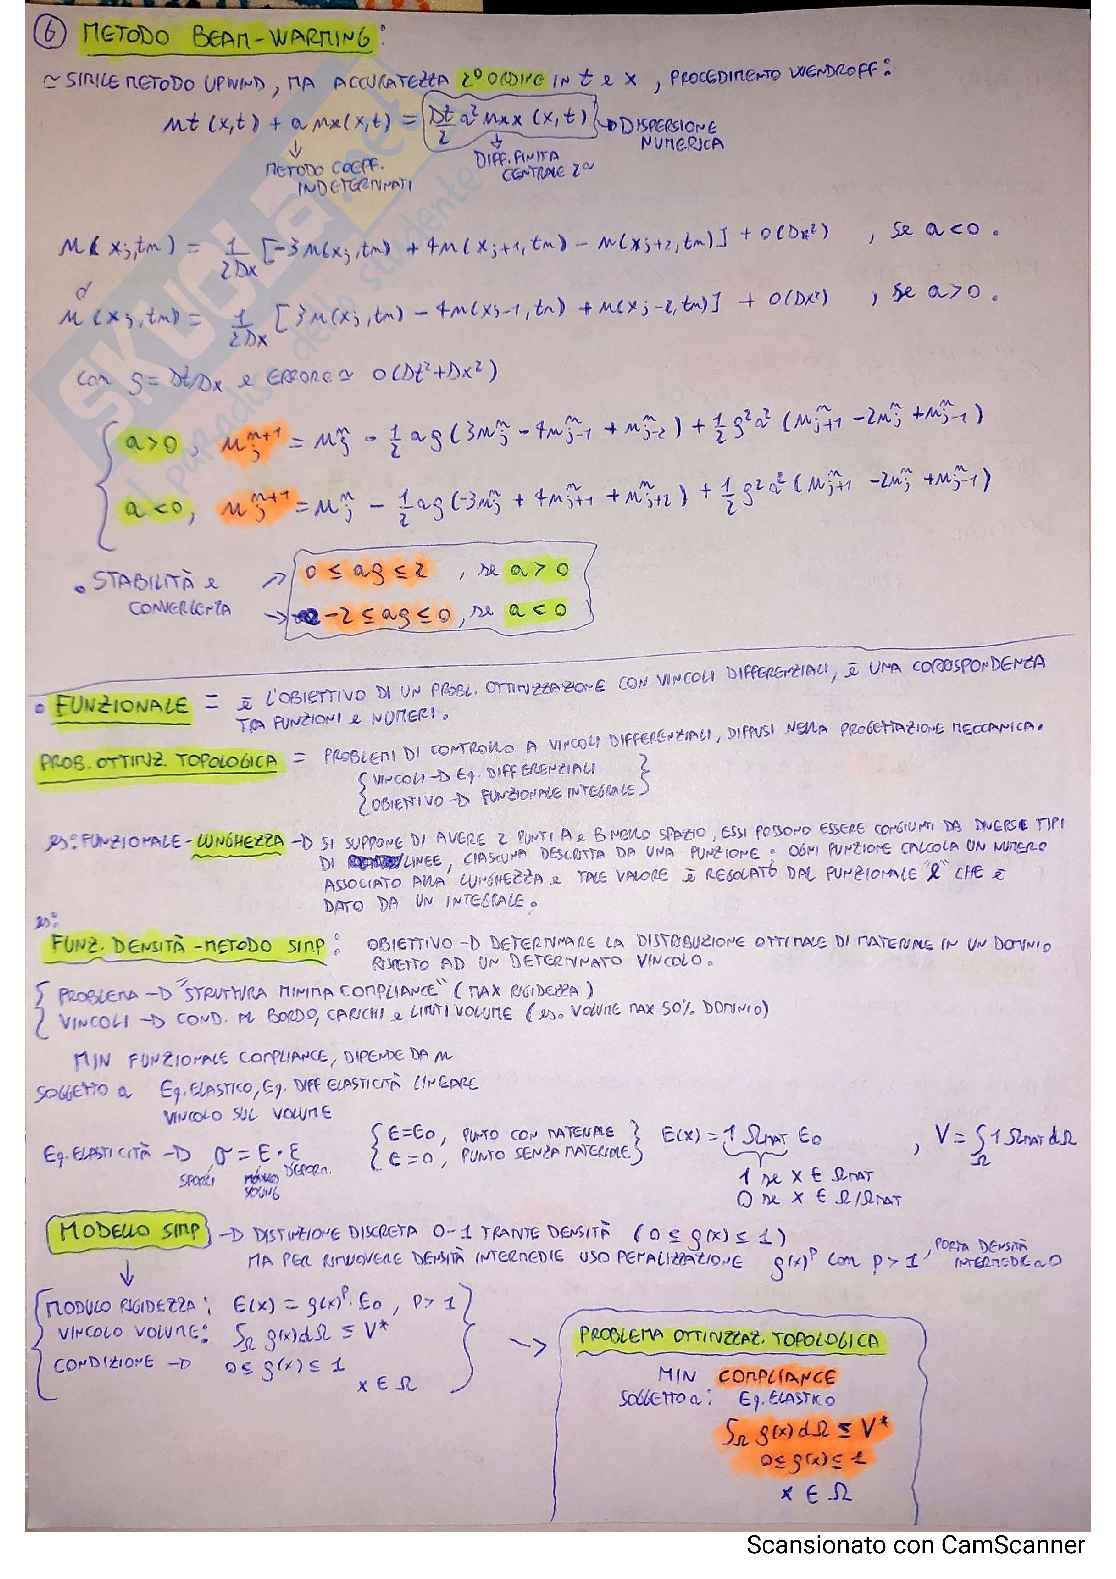 ⑥ METODO BEAM-WARMING:
≃ SIMILE METODO UPWIND, MA ACCURATEZZA 2° ORDINE IN t e x, PROCEDIMENTO WENDROFF:
ut(x,t) + a ux(x,t) = Dt/2 a² uxx(x,t) → DISPERSIONE NUMERICA
↓ METODO COEFF. INDETERMINATI
↓ DIFF. FINITA CENTRALE 2ª
u(xj,tn) = 1/2Dx [-3u(xj,tn) + 4u(xj+1,tn) - u(xj+2,tn)] + O(Dx²) , se a<0.
o
u(xj,tn) = 1/2Dx [3u(xj,tn) - 4u(xj-1,tn) + u(xj-2,tn)] + O(Dx²) , se a>0.
con ρ = Dt/Dx e ERRORE ≃ O(Dt²+Dx²)
{ a>0, uj^n+1 = uj^n - 1/2 aρ(3uj^n - 4uj-1^n + uj-2^n) + 1/2 ρ²a²(uj+1^n - 2uj^n + uj-1^n)
a<0, uj^n+1 = uj^n - 1/2 aρ(-3uj^n + 4uj+1^n + uj+2^n) + 1/2 ρ²a²(uj+1^n - 2uj^n + uj-1^n)
• STABILITÀ e CONVERGENZA
→ 0 ≤ aρ ≤ 2 , se a>0
→ -2 ≤ aρ ≤ 0, se a<0
• FUNZIONALE = È L'OBIETTIVO DI UN PROBL. OTTIMIZZAZIONE CON VINCOLI DIFFERENZIALI, È UNA CORRISPONDENZA
TRA FUNZIONI e NUMERI.
PROB. OTTIMIZ. TOPOLOGICA = PROBLEMI DI CONTROLLO A VINCOLI DIFFERENZIALI, DIFFUSI NELLA PROGETTAZIONE MECCANICA.
{ VINCOLI → Eq. DIFFERENZIALI
OBIETTIVO → FUNZIONALE INTEGRALE }
es: FUNZIONALE-LUNGHEZZA → SI SUPPONE DI AVERE 2 PUNTI A e B NELLO SPAZIO, ESSI POSSONO ESSERE CONGIUNTI DA DIVERSE TIPI
DI LINEE, CIASCUNA DESCRITTA DA UNA FUNZIONE: OGNI FUNZIONE CALCOLA UN NUMERO
ASSOCIATO ALLA LUNGHEZZA e TALE VALORE È REGOLATO DAL FUNZIONALE "l" CHE È
DATO DA UN INTEGRALE.
es:
FUNZ. DENSITÀ-METODO SIMP: OBIETTIVO → DETERMINARE LA DISTRIBUZIONE OTTIMALE DI MATERIALE IN UN DOMINIO
RISPETTO AD UN DETERMINATO VINCOLO.
{ PROBLEMA → "STRUTTURA MINIMA COMPLIANCE" (MAX RIGIDEZZA)
VINCOLI → COND. AL BORDO, CARICHI e LIMITI VOLUME (es. VOLUME MAX 50% DOMINIO)
MIN FUNZIONALE COMPLIANCE, DIPENDE DA u
SOGGETTO a Eq. ELASTICO, Eq. DIFF ELASTICITÀ LINEARE
VINCOLO SUL VOLUME
Eq. ELASTICITÀ → σ = E · ε
SFORZI MODULO YOUNG DEFORM.
{ E=E0, PUNTO CON MATERIALE
E=0, PUNTO SENZA MATERIALE }
E(x) = 1 Ωmat E0 , V = ∫Ω 1 Ωmat dΩ
1 se x ∈ Ωmat
0 se x ∈ Ω/Ωmat
MODELLO SIMP → DISTINZIONE DISCRETA 0-1 TRAMITE DENSITÀ (0 ≤ ρ(x) ≤ 1)
MA PER RIMUOVERE DENSITÀ INTERMEDIE USO PENALIZZAZIONE ρ(x)^p con p>1, PORTA DENSITÀ INTERMEDIE ≃ 0
{ MODULO RIGIDEZZA: E(x) = ρ(x)^p · E0, p>1
VINCOLO VOLUME: ∫Ω ρ(x)dΩ ≤ V*
CONDIZIONE → 0 ≤ ρ(x) ≤ 1
x ∈ Ω }
→ PROBLEMA OTTIMIZZAZ. TOPOLOGICA
MIN COMPLIANCE
SOGGETTO a: Eq. ELASTICO
∫Ω ρ(x)dΩ ≤ V*
0 ≤ ρ(x) ≤ 1
x ∈ Ω
Scansionato con CamScanner